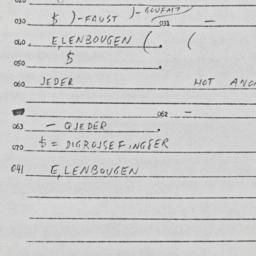 030 $ )-FAUST 033 —
040 ELENBOUGEN ( (
050 $
060 JEDER HOT
062 —
063 — QJEDER
070 $ = DIGROJSEFINGSER
041 E,LENBOUGEN